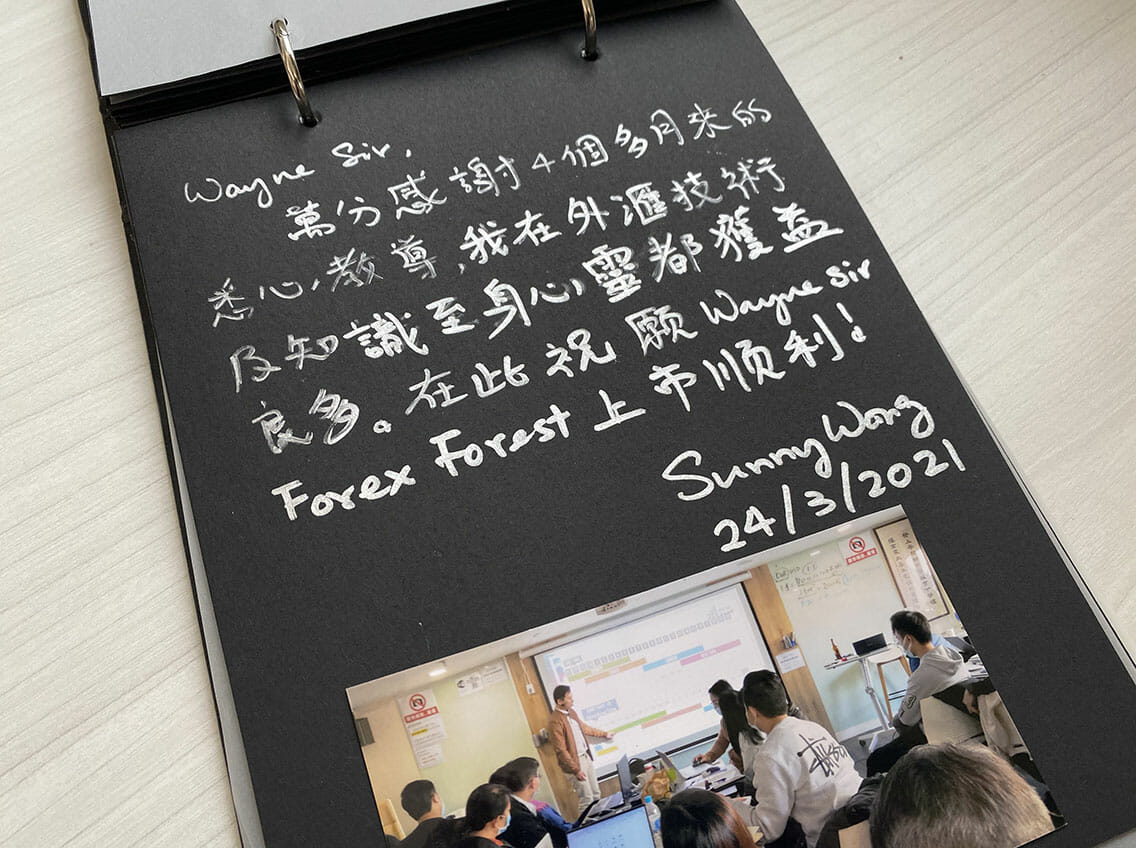 Wayne Sir,
萬分感謝4個多月來的
悉心教導,我在外滙技術
及知識至身心靈都獲益
良多。在此祝願Wayne Sir
Forex Forest上市顺利!
Sunny Wong
24/3/2021